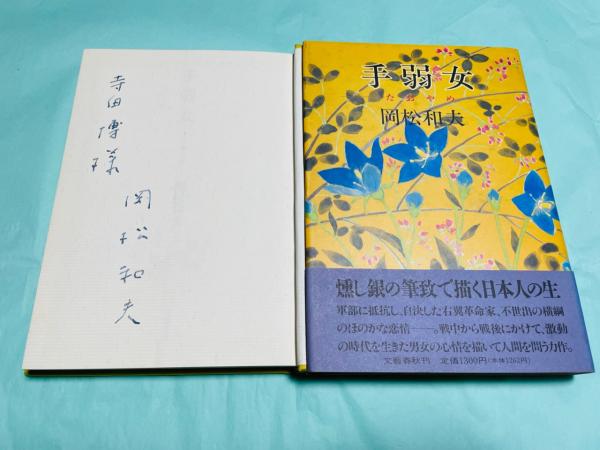 寺田博様
岡松和夫
手弱女
たおやめ
岡松和夫
燻し銀の筆致で描く日本人の生
軍部に抵抗し、自決した右翼革命家、不世出の横綱
のほのかな恋情――。戦中から戦後にかけて、激動
の時代を生きた男女の心情を描いて人間を問う力作。
文藝春秋刊 定価1300円(本体1262円)